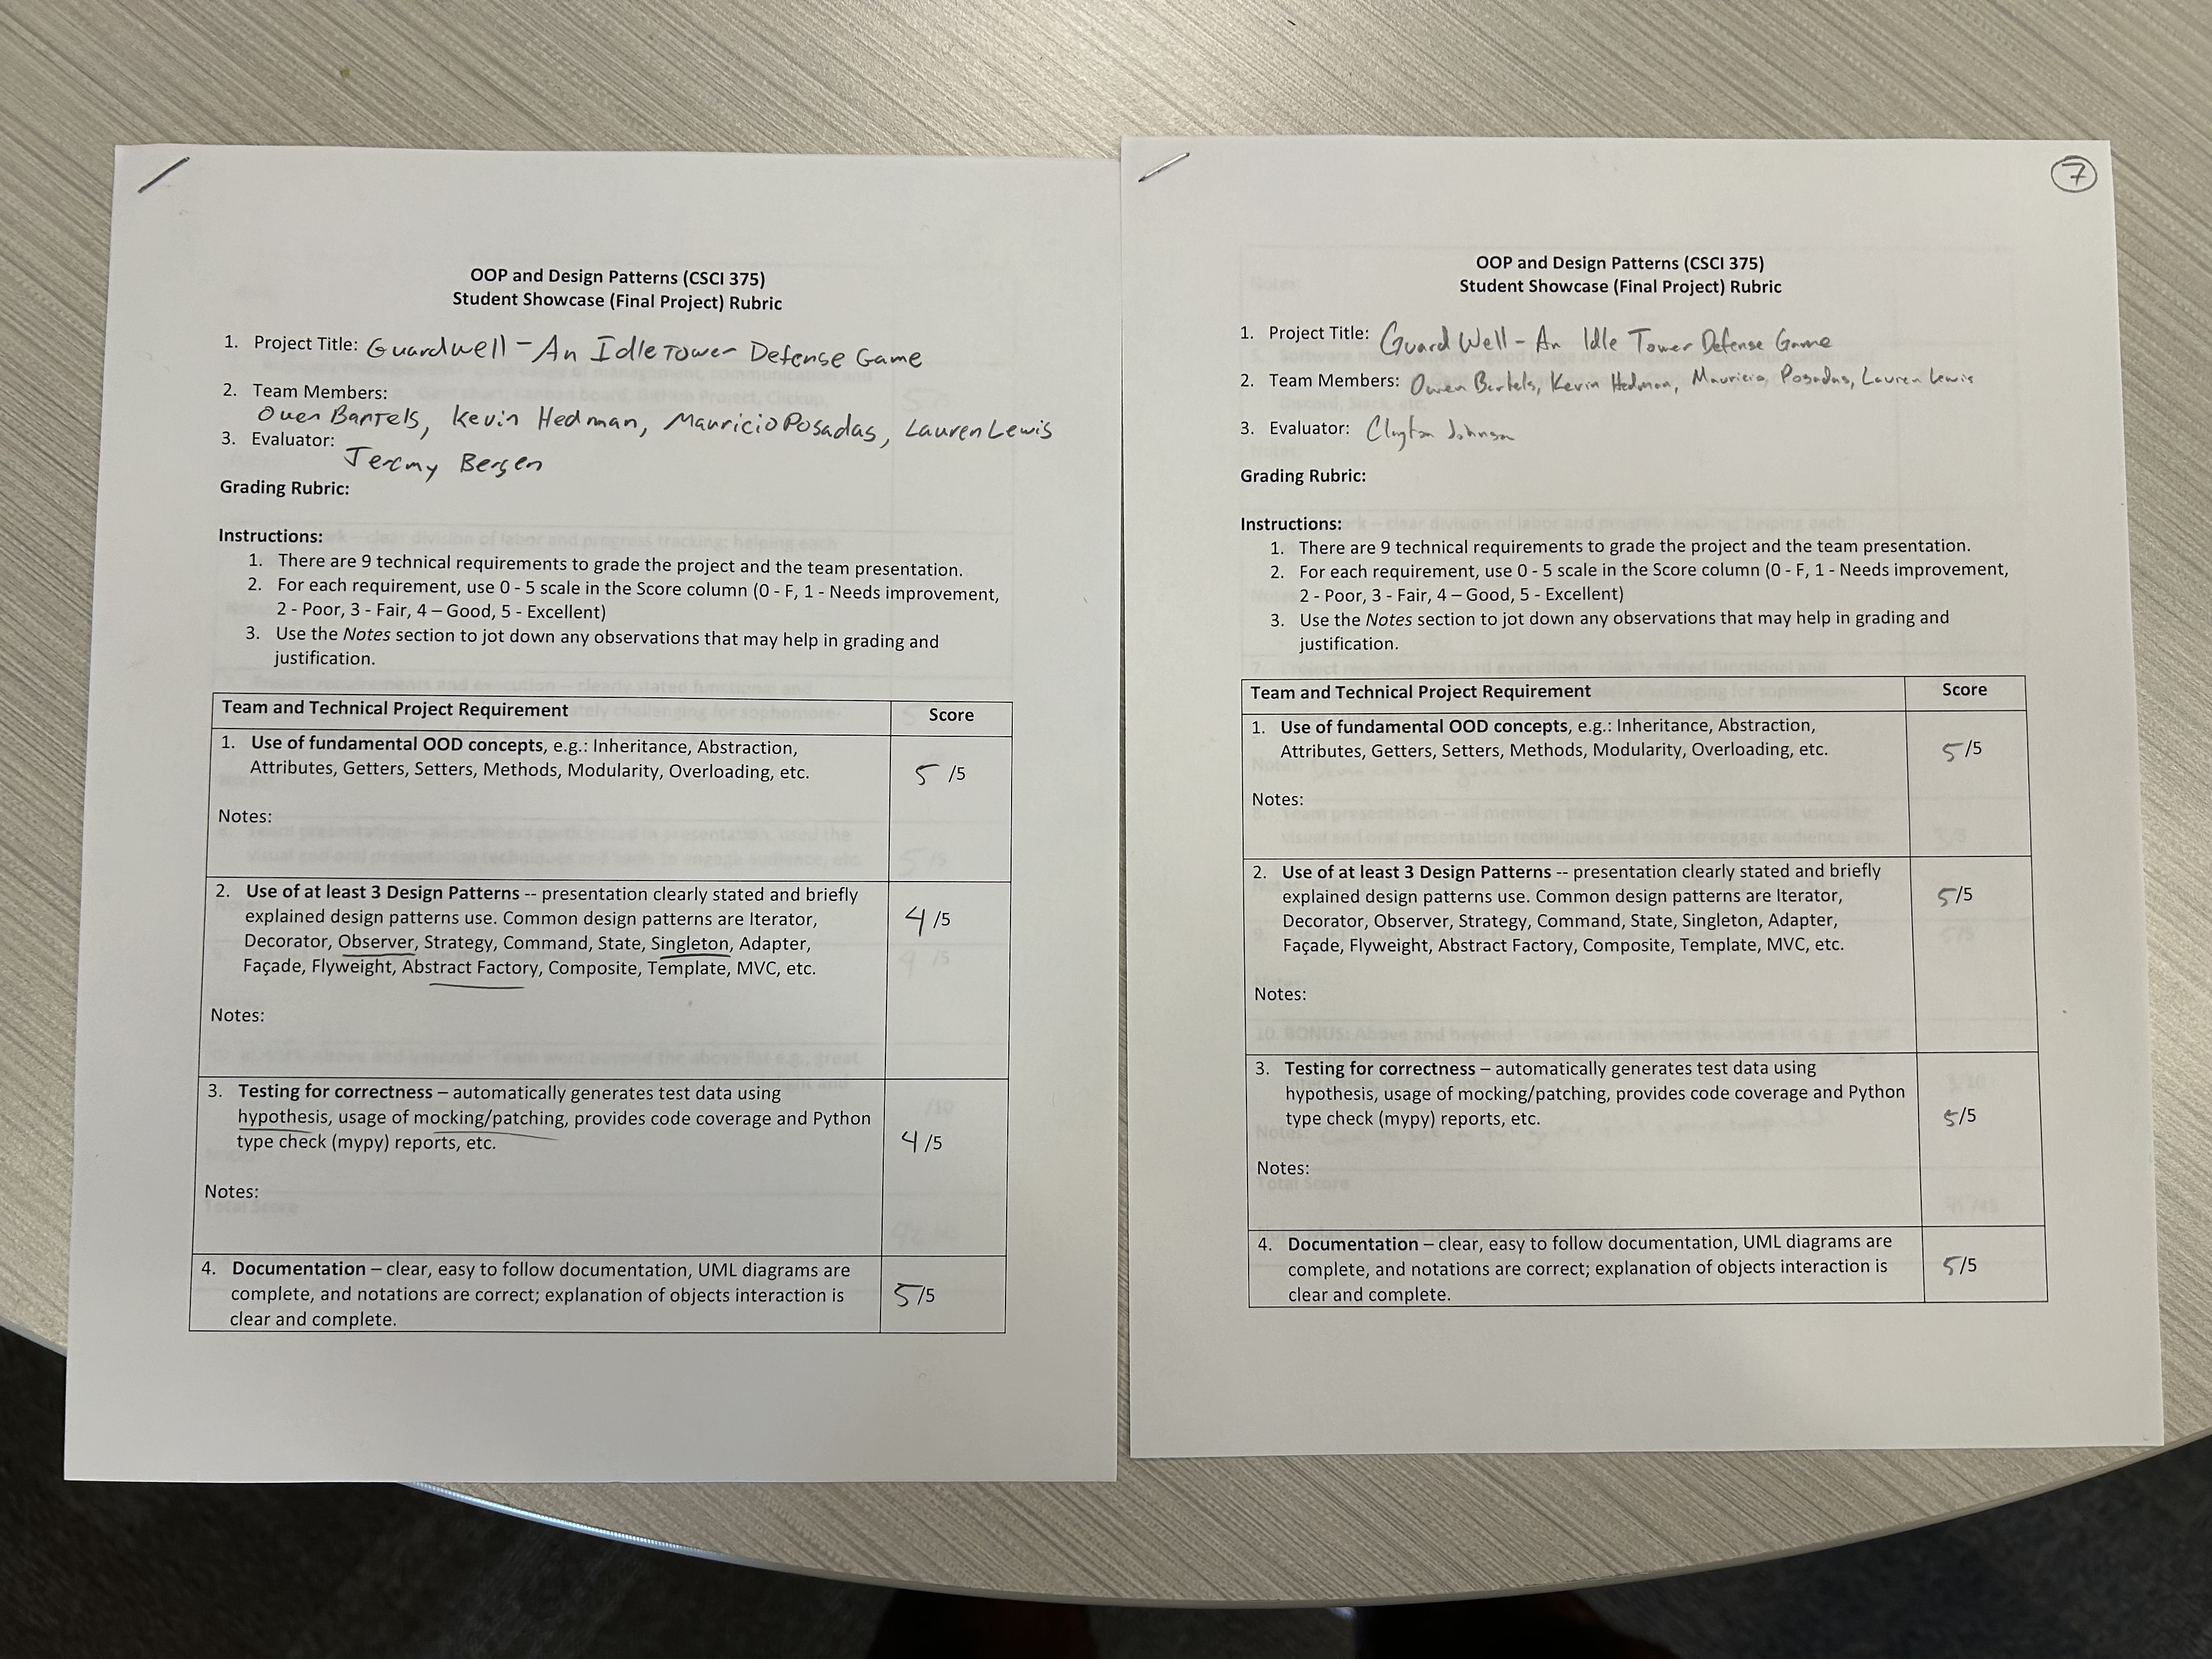 OOP and Design Patterns (CSCI 375)
Student Showcase (Final Project) Rubric
1. Project Title: Guardwell - An Idle Tower Defense Game
2. Team Members:
Owen Bartels, Kevin Hedman, Mauricio Posadas, Lauren Lewis
3. Evaluator:
Jeremy Bergen
Grading Rubric:
Instructions:
1. There are 9 technical requirements to grade the project and the team presentation.
2. For each requirement, use 0 - 5 scale in the Score column (0 - F, 1 - Needs improvement,
2 - Poor, 3 - Fair, 4 – Good, 5 - Excellent)
3. Use the Notes section to jot down any observations that may help in grading and
justification.
Team and Technical Project Requirement Score
1. Use of fundamental OOD concepts, e.g.: Inheritance, Abstraction,
Attributes, Getters, Setters, Methods, Modularity, Overloading, etc.
5 /5
Notes:
2. Use of at least 3 Design Patterns -- presentation clearly stated and briefly
explained design patterns use. Common design patterns are Iterator,
Decorator, Observer, Strategy, Command, State, Singleton, Adapter,
Façade, Flyweight, Abstract Factory, Composite, Template, MVC, etc.
4 /5
Notes:
3. Testing for correctness – automatically generates test data using
hypothesis, usage of mocking/patching, provides code coverage and Python
type check (mypy) reports, etc.
4 /5
Notes:
4. Documentation – clear, easy to follow documentation, UML diagrams are
complete, and notations are correct; explanation of objects interaction is
clear and complete.
5 /5
7
OOP and Design Patterns (CSCI 375)
Student Showcase (Final Project) Rubric
1. Project Title: Guard Well - An Idle Tower Defense Game
2. Team Members: Owen Bartels, Kevin Hedman, Mauricio Posadas, Lauren Lewis
3. Evaluator: Clayton Johnson
Grading Rubric:
Instructions:
1. There are 9 technical requirements to grade the project and the team presentation.
2. For each requirement, use 0 - 5 scale in the Score column (0 - F, 1 - Needs improvement,
2 - Poor, 3 - Fair, 4 – Good, 5 - Excellent)
3. Use the Notes section to jot down any observations that may help in grading and
justification.
Team and Technical Project Requirement Score
1. Use of fundamental OOD concepts, e.g.: Inheritance, Abstraction,
Attributes, Getters, Setters, Methods, Modularity, Overloading, etc.
5/5
Notes:
2. Use of at least 3 Design Patterns -- presentation clearly stated and briefly
explained design patterns use. Common design patterns are Iterator,
Decorator, Observer, Strategy, Command, State, Singleton, Adapter,
Façade, Flyweight, Abstract Factory, Composite, Template, MVC, etc.
5/5
Notes:
3. Testing for correctness – automatically generates test data using
hypothesis, usage of mocking/patching, provides code coverage and Python
type check (mypy) reports, etc.
5/5
Notes:
4. Documentation – clear, easy to follow documentation, UML diagrams are
complete, and notations are correct; explanation of objects interaction is
clear and complete.
5/5